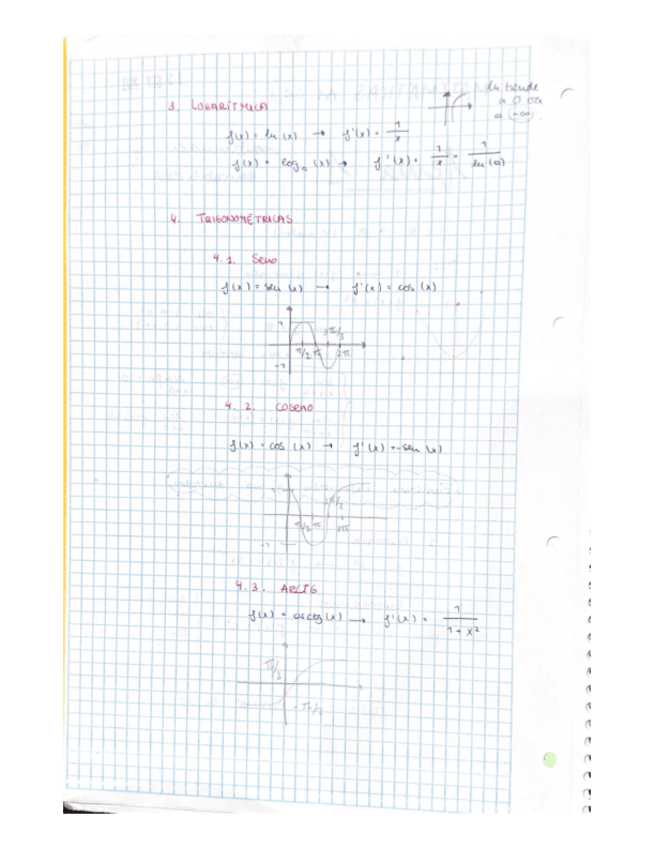 ln tiende
a 0 va
a -∞
3. LOGARÍTMICA
f(x) = ln (x) → f'(x) = 1/x
f(x) = log_a (x) → f'(x) = 1/x · 1/ln(a)
4. TRIGONOMÉTRICAS
4.1. Seno
f(x) = sen (x) → f'(x) = cos (x)
1
3π/3
π/2 π 2π
-1
4.2. COSENO
f(x) = cos (x) → f'(x) = -sen (x)
3π/2
π/2 π 2π
-1
4.3. ARCTG
f(x) = arctg (x) → f'(x) = 1/1+x²
π/2
-π/2